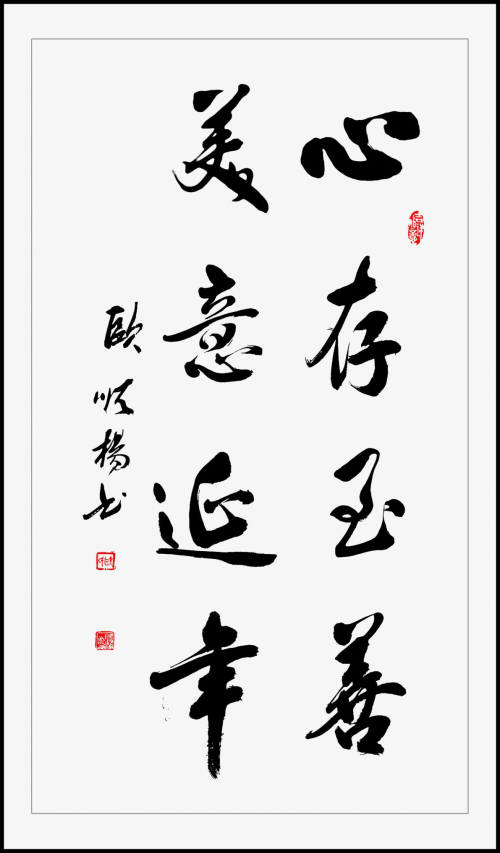 心存至善
美意延年
欧顺杨书